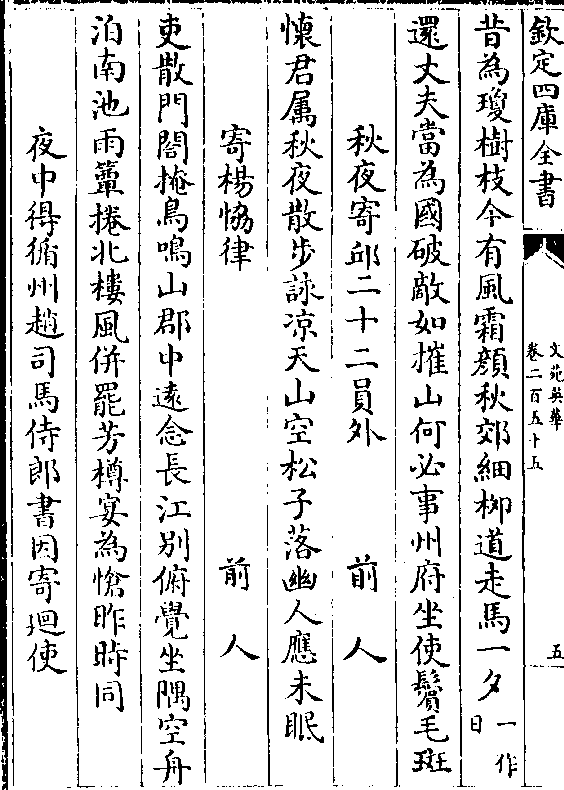 欽定四庫全書
文苑英華
卷二百五十五
五
昔為瓊樹枝今有風霜顔秋郊細栁道走馬一夕一作日
還丈夫當為國破敵如摧山何必事州府坐使鬢毛斑
秋夜寄邱二十二員外 前人
懷君属秋夜散步詠凉天山空松子落幽人應未眠
寄楊恊律 前人
吏散門閤掩鳥鳴山郡中遠念長江别俯覺坐隅空舟
泊南池雨簟捲北樓風併罷芳樽宴為愴昨時同
夜中得循州趙司馬侍郎書因寄廻使